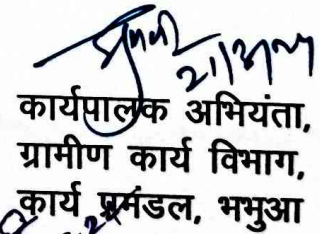 कार्यपालक अभियंता,
ग्रामीण कार्य विभाग,
कार्य प्रमंडल, भभुआ